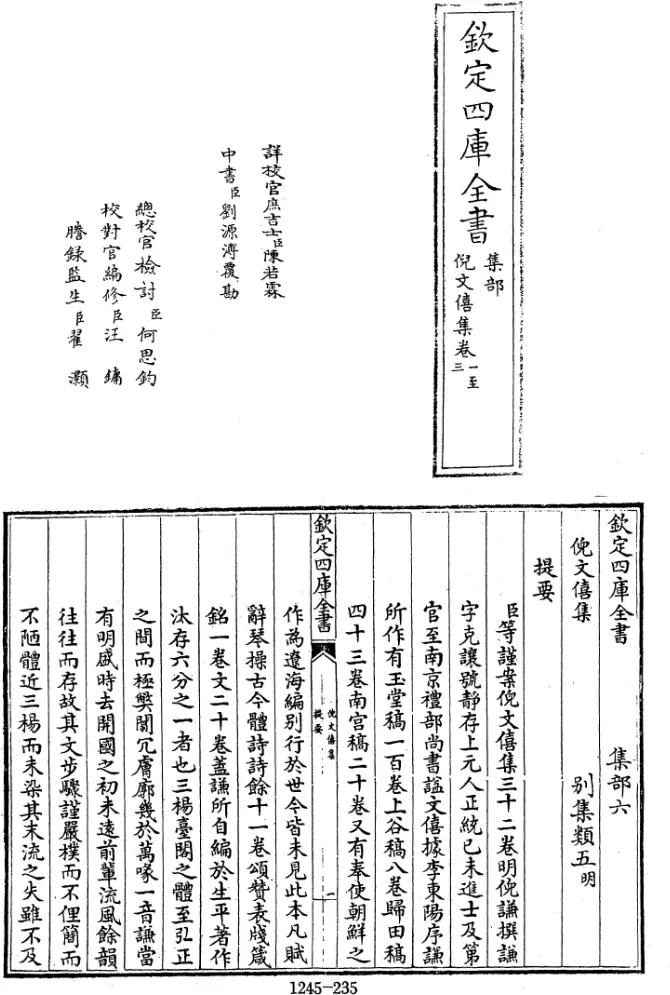 欽定四庫全書
集部
倪文僖集卷一至三
詳校官庶吉士臣陳若霖
中書臣劉源溥覆勘
總校官檢討臣何思鈞
校對官編修臣汪鏞
謄錄監生臣翟灝
欽定四庫全書 集部六
倪文僖集 別集類五明
提要
臣等謹案倪文僖集三十二卷明倪謙撰謙
字克讓號靜存上元人正統己未進士及第
官至南京禮部尚書諡文僖據李東陽序謙
所作有玉堂稿一百卷上谷稿八卷歸田稿
四十三卷南宮稿二十卷又有奉使朝鮮之
欽定四庫全書
倪文僖集
提要
一
作為遼海編別行於世今皆未見此本凡賦
辭琴操古今體詩詩餘十一卷頌贊表牋箴
銘一卷文二十卷蓋謙所自編於生平著作
汰存六分之一者也三楊臺閣之體至弘正
之間而極弊閴冗膚廓幾於萬喙一音謙當
有明盛時去開國之初未遠前輩流風餘韻
往往而存故其文步驟謹嚴樸而不俚簡而
不陋體近三楊而未染其末流之失雖不及
1245-235